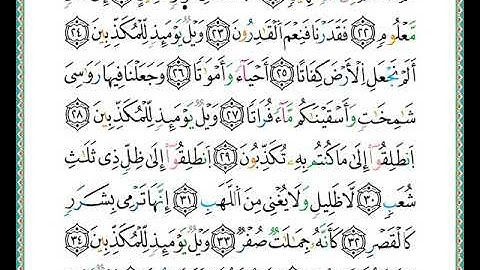 مَّعْلُومٍ ﴿٢٢﴾ فَقَدَرْنَا فَنِعْمَ الْقَادِرُونَ ﴿٢٣﴾ وَيْلٌ يَوْمَئِذٍ لِّلْمُكَذِّبِينَ ﴿٢٤﴾
أَلَمْ نَجْعَلِ الْأَرْضَ كِفَاتًا ﴿٢٥﴾ أَحْيَاءً وَأَمْوَاتًا ﴿٢٦﴾ وَجَعَلْنَا فِيهَا رَوَاسِيَ
شَامِخَاتٍ وَأَسْقَيْنَاكُم مَّاءً فُرَاتًا ﴿٢٧﴾ وَيْلٌ يَوْمَئِذٍ لِّلْمُكَذِّبِينَ ﴿٢٨﴾
انطَلِقُوا إِلَىٰ مَا كُنتُم بِهِ تُكَذِّبُونَ ﴿٢٩﴾ انطَلِقُوا إِلَىٰ ظِلٍّ ذِي ثَلَاثِ
شُعَبٍ ﴿٣٠﴾ لَّا ظَلِيلٍ وَلَا يُغْنِي مِنَ اللَّهَبِ ﴿٣١﴾ إِنَّهَا تَرْمِي بِشَرَرٍ
كَالْقَصْرِ ﴿٣٢﴾ كَأَنَّهُ جِمَالَتٌ صُفْرٌ ﴿٣٣﴾ وَيْلٌ يَوْمَئِذٍ لِّلْمُكَذِّبِينَ ﴿٣٤﴾